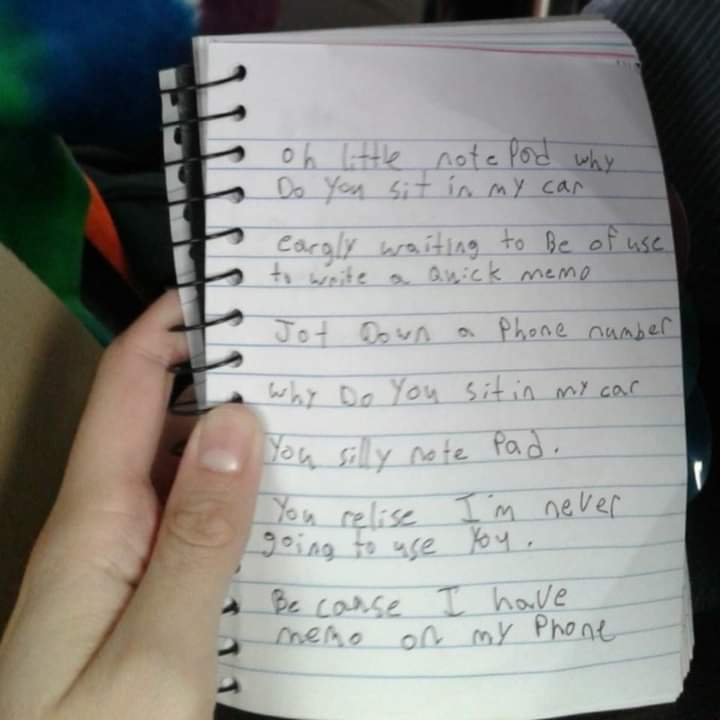 oh little note Pad why
Do You sit in my car
eargly waiting to Be of use
to write a Quick memo
Jot Down a Phone number
why Do You sit in my car
You silly note Pad.
You relise I'm never
going to use You.
Be cause I have
memo on my Phone